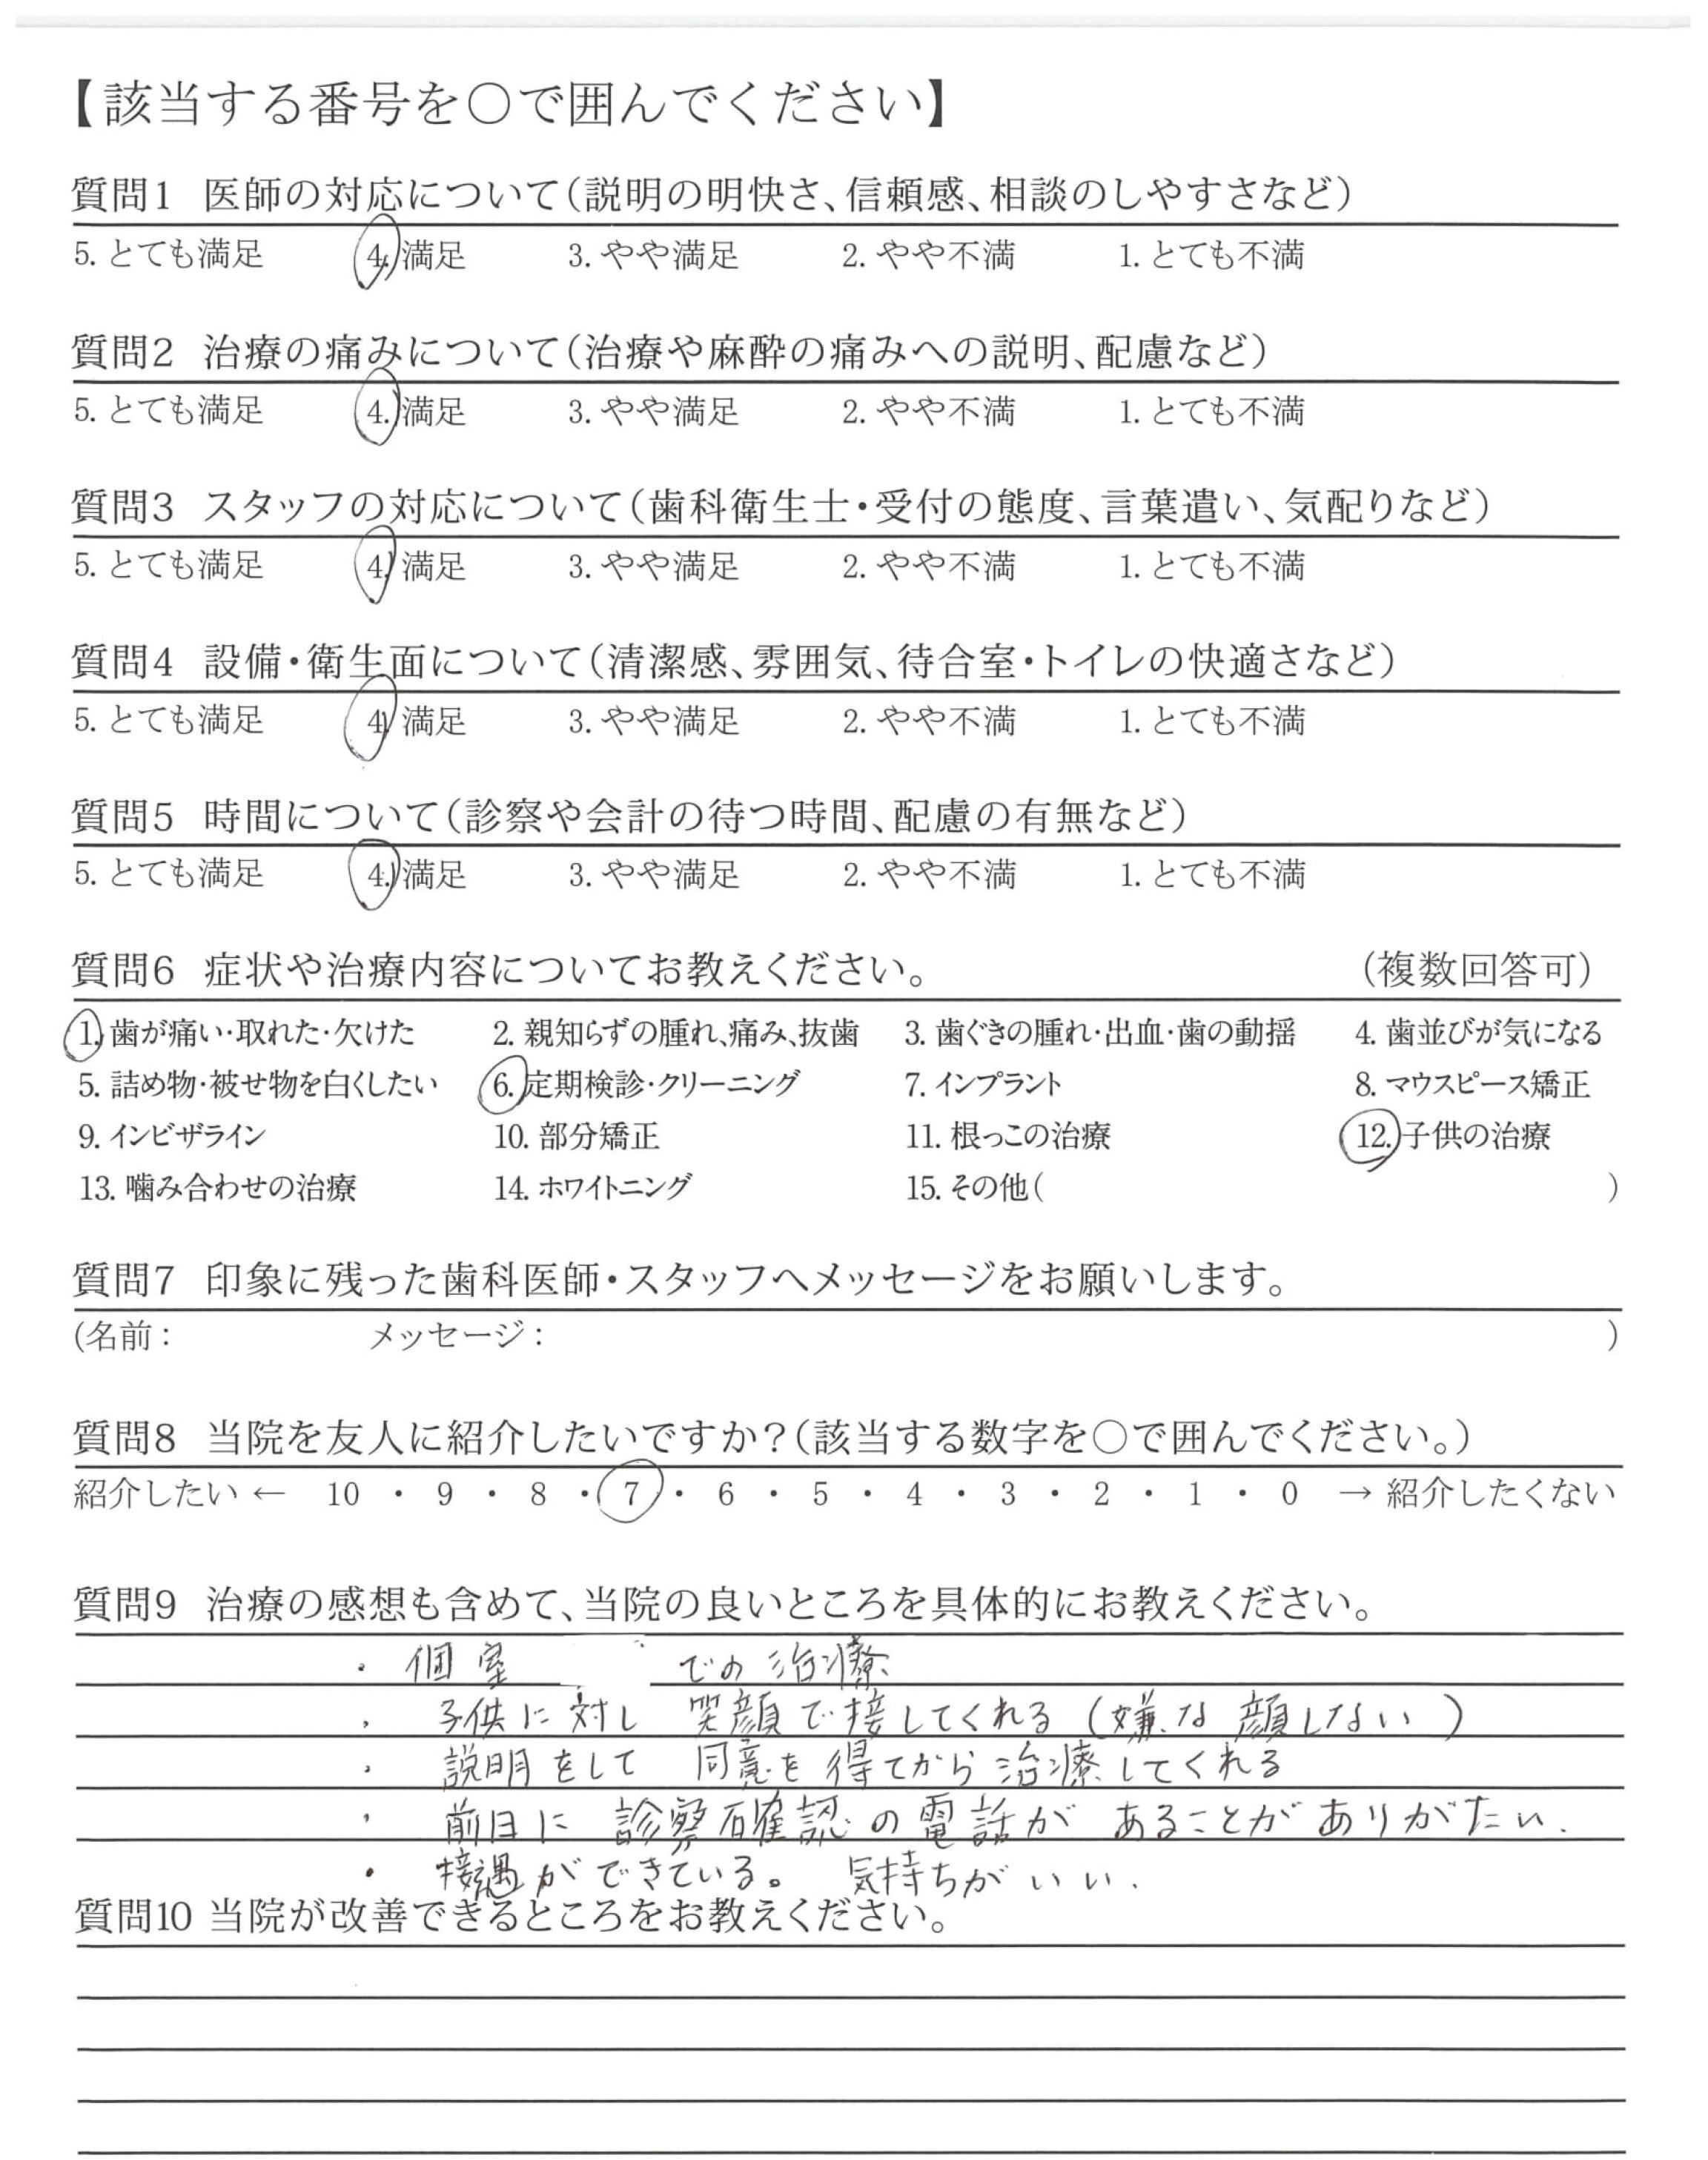 【該当する番号を○で囲んでください】
質問1 医師の対応について(説明の明快さ、信頼感、相談のしやすさなど)
5. とても満足 4. 満足 3. やや満足 2. やや不満 1. とても不満
質問2 治療の痛みについて(治療や麻酔の痛みへの説明、配慮など)
5. とても満足 4. 満足 3. やや満足 2. やや不満 1. とても不満
質問3 スタッフの対応について(歯科衛生士・受付の態度、言葉遣い、気配りなど)
5. とても満足 4. 満足 3. やや満足 2. やや不満 1. とても不満
質問4 設備・衛生面について(清潔感、雰囲気、待合室・トイレの快適さなど)
5. とても満足 4. 満足 3. やや満足 2. やや不満 1. とても不満
質問5 時間について(診察や会計の待つ時間、配慮の有無など)
5. とても満足 4. 満足 3. やや満足 2. やや不満 1. とても不満
質問6 症状や治療内容についてお教えください。 (複数回答可)
1. 歯が痛い・取れた・欠けた 2. 親知らずの腫れ、痛み、抜歯 3. 歯ぐきの腫れ・出血・歯の動揺 4. 歯並びが気になる
5. 詰め物・被せ物を白くしたい 6. 定期検診・クリーニング 7. インプラント 8. マウスピース矯正
9. インビザライン 10. 部分矯正 11. 根っこの治療 12. 子供の治療
13. 噛み合わせの治療 14. ホワイトニング 15. その他( )
質問7 印象に残った歯科医師・スタッフへメッセージをお願いします。
(名前: メッセージ: )
質問8 当院を友人に紹介したいですか?(該当する数字を○で囲んでください。)
紹介したい ← 10 ・ 9 ・ 8 ・ 7 ・ 6 ・ 5 ・ 4 ・ 3 ・ 2 ・ 1 ・ 0 → 紹介したくない
質問9 治療の感想も含めて、当院の良いところを具体的にお教えください。
・ 個室 での治療
・ 子供に対し 笑顔で接してくれる (嫌な顔しない)
・ 説明をして 同意を得てから治療してくれる
・ 前日に 診察確認の電話が あることがありがたい.
・ 接遇ができている。 気持ちがいい.
質問10 当院が改善できるところをお教えください。